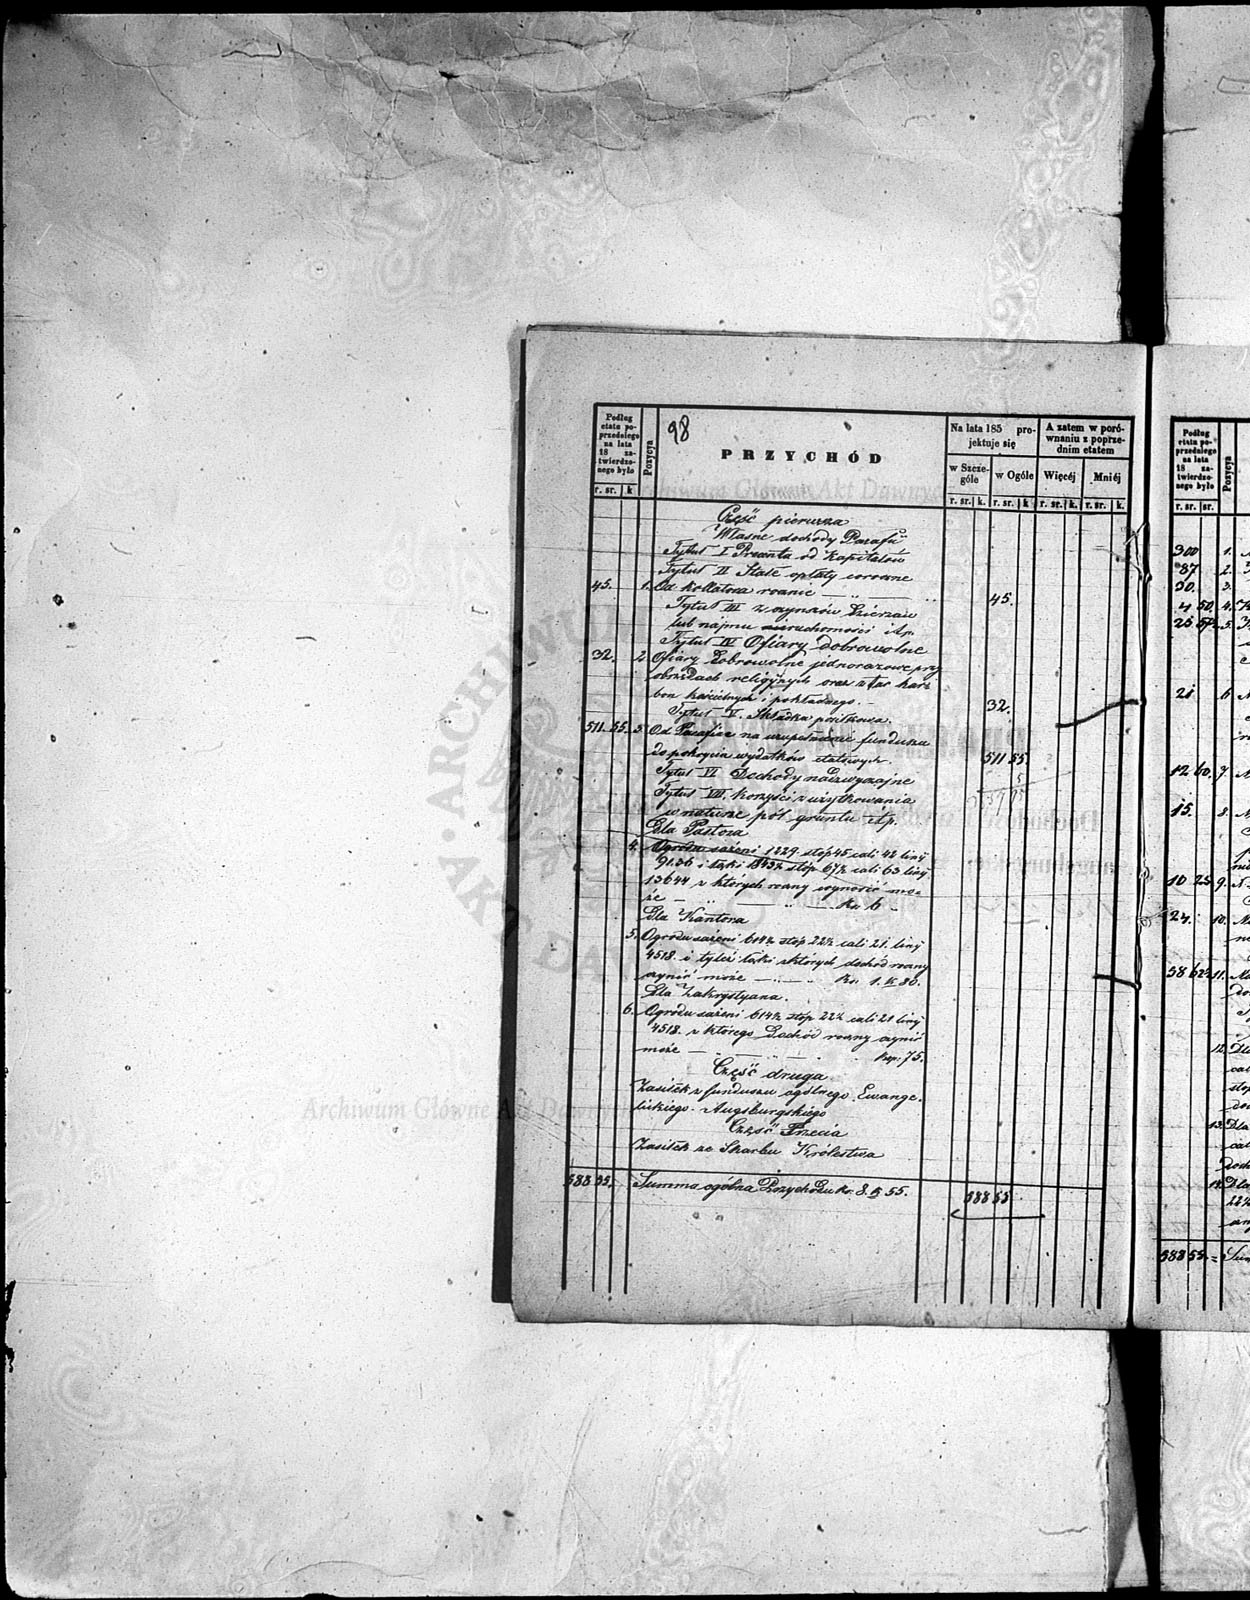 98
Podług
etatu po-
przedniego
na lata
18 za-
twierdzo-
nego było
Pozycya
PRZYCHÓD
Na lata 185 pro-
jektuje się
w Szcze-
góle
w Ogóle
A zatem w poró-
wnaniu z poprze-
dnim etatem
Więcéj
Mniéj
r. sr. k
r. sr. k. r. sr. k r. sr. k. r. sr. k.
Część pierwsza
Własne dochody Parafii
Tytuł I Procenta od Kapitałów
Tytuł II Stałe opłaty coroczne
45. 1. Od Kollatora rocznie 45.
Tytuł III z czynszów Dzierżaw
lub najmu nieruchomości itp.
Tytuł IV Ofiary dobrowolne
32. 2. Ofiary Dobrowolne jednorazowe przy
obrzędach religijnych oraz z tac kar-
bon kościelnych i pokładnego. 32.
Tytuł V. Składka posiłkowa.
511. 55. 3. Od Parafian na uzupełnienie funduszu
do pokrycia wydatków etatowych. 511 55.
Tytuł VI Dochody nadzwyczajne
Tytuł VII. Korzyści z użytkowania
w naturze pól gruntu itp.
Dla Pastora
4. Ogrodu sążeni 1229 stóp 45 cali 42 liny
9136 i łąki stóp 67½ cali 63 liny
13644 z których roczny wynosić mo-
że Rs 6 -
Dla Kantora
5. Ogrodu sążeni 614½ stóp 22½ cali 21. liny
4518. i tyleż łąki z których dochód roczny
czynić może Rs. 1. k 80.
Dla Zakrystyana.
6. Ogrodu sążeni 614½ stóp 22½ cali 21 liny
4518. z którego Dochód roczny czynić
może kop. 75.
Część druga
Zasiłek z funduszu ogólnego Ewange-
lickiego-Augsburgskiego
Część Trzecia
Zasiłek ze Skarbu Królestwa
588 55. Summa ogólna Przychodu Rs. 8. k 55. 588 55
Podług
etatu po-
przedniego
na lata
18 za-
twierdzo-
nego było
Pozycya
r. sr. sr.
300 1.
87 2.
30. 3.
4 50. 4.
25 5.
21 6
12 60. 7.
15. 8.
10 25 9.
24. 10.
58 62½ 11.
12.
13.
14.
588 55.
Archiwum Główne Akt Dawnych
Archiwum Główne Akt Dawnych